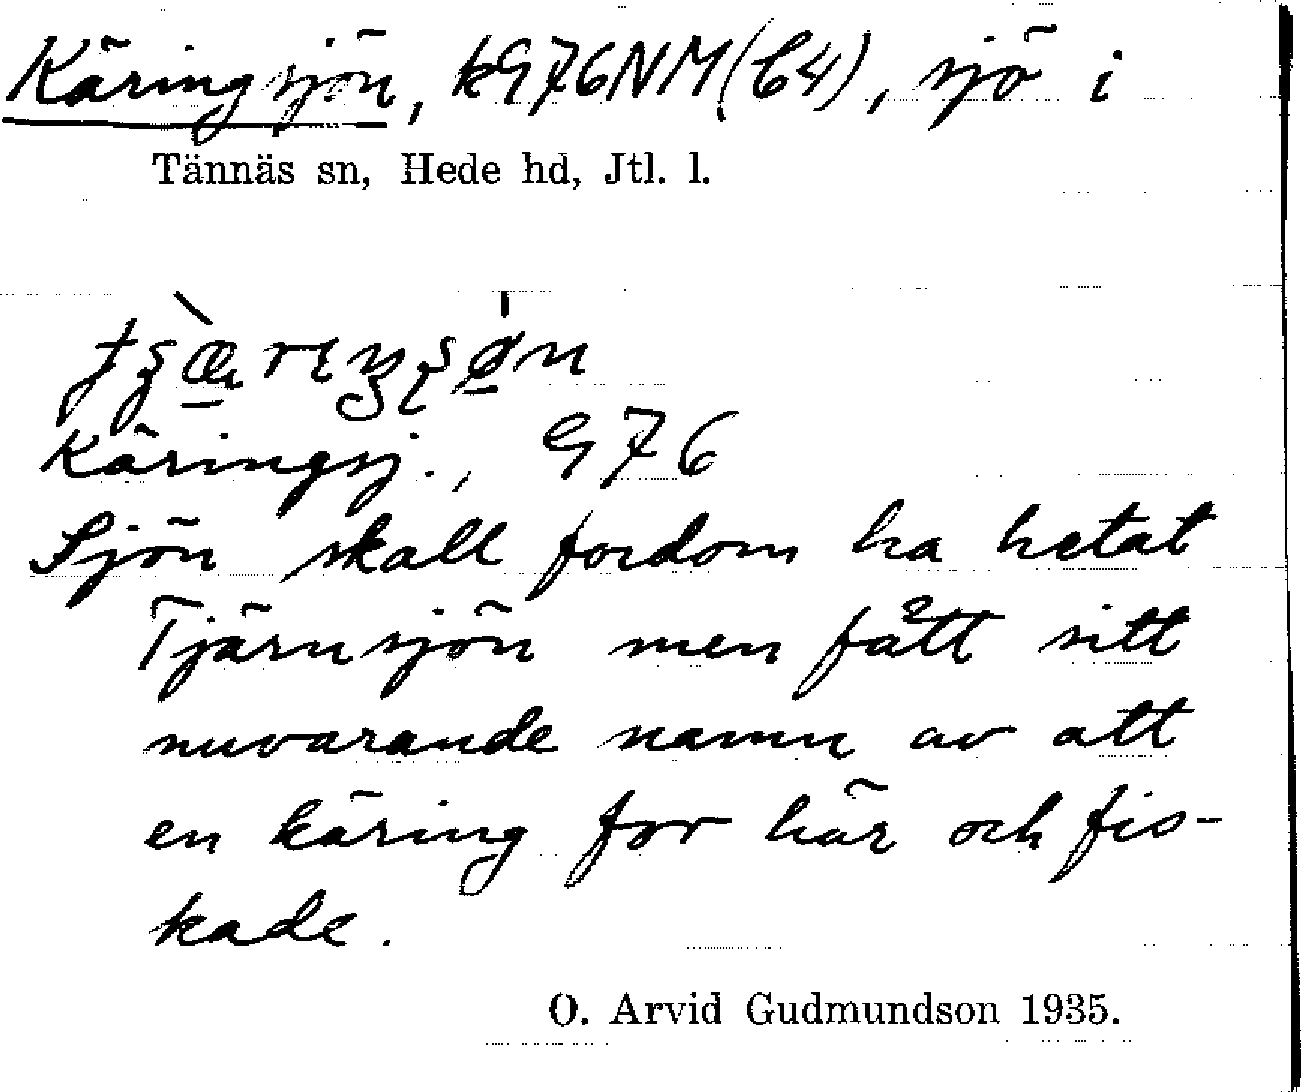 Käringsjön, k976NM(b4), sjö i
Tännäs sn, Hede hd, Jtl. l.
Käringsj., 976
Sjön skall fordom ha hetat
Tjärnsjön men fått sitt
nuvarande namn av att
en käring for här och fis-
kade.
O. Arvid Gudmundson 1935.